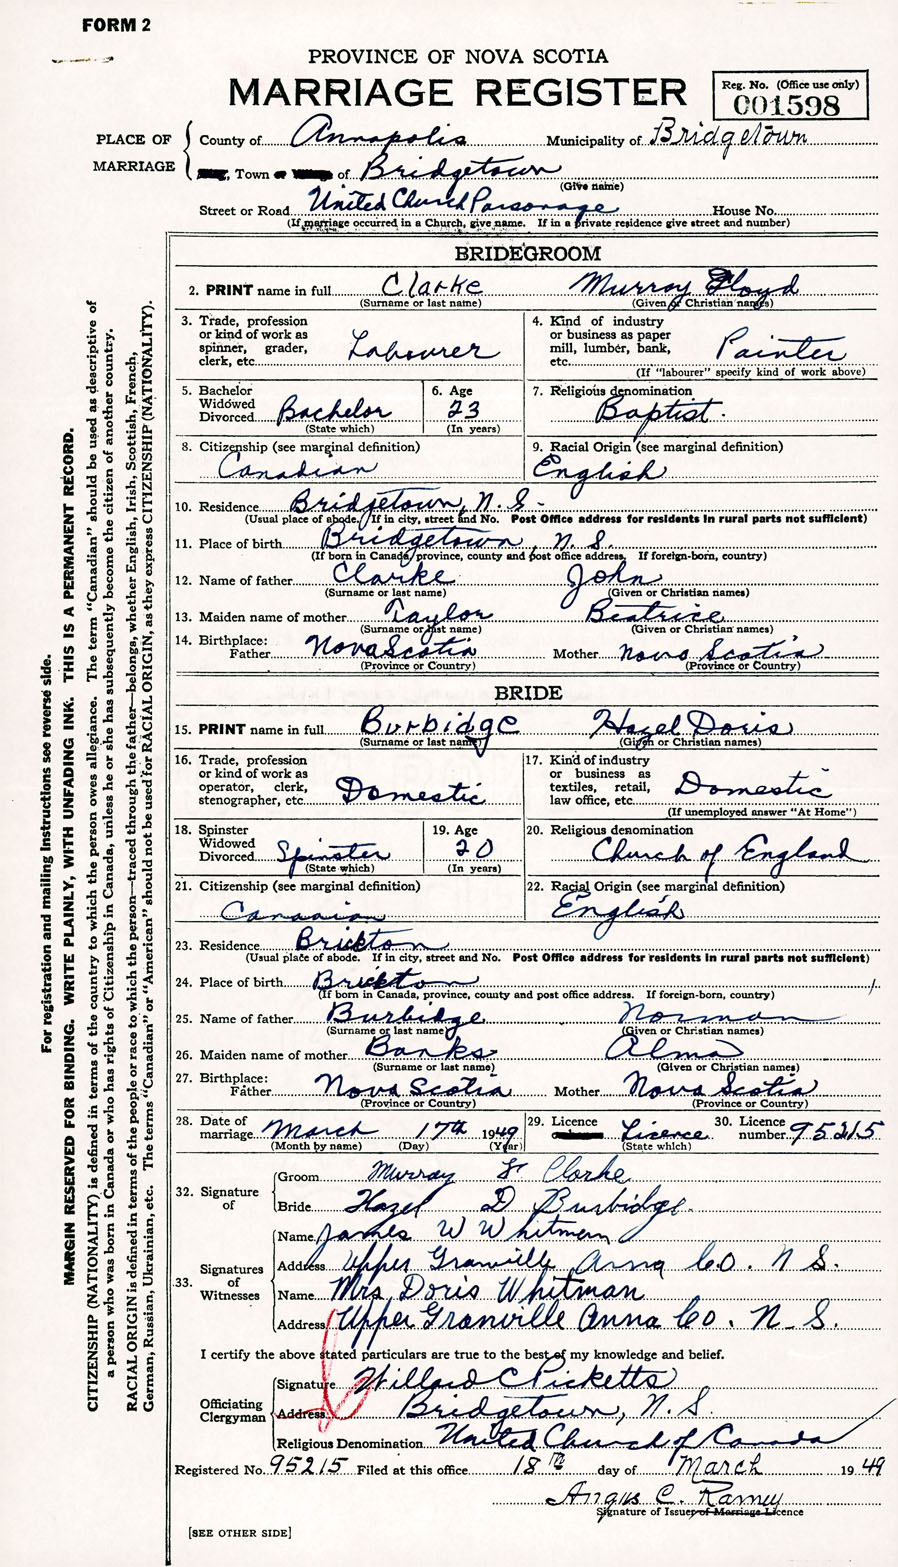 FORM 2
PROVINCE OF NOVA SCOTIA
MARRIAGE REGISTER
Reg. No. (Office use only)
001598
PLACE OF MARRIAGE
County of Annapolis Municipality of Bridgetown
Town or of Bridgetown
(Give name)
Street or Road United Church Parsonage House No.
(If marriage occurred in a Church, give name. If in a private residence give street and number)
BRIDEGROOM
2. PRINT name in full Clarke Murray Floyd
(Surname or last name) (Given or Christian names)
3. Trade, profession or kind of work as spinner, grader, clerk, etc. Labourer
4. Kind of industry or business as paper mill, lumber, bank, etc. Painter
(If "labourer" specify kind of work above)
5. Bachelor Widowed Divorced Bachelor
(State which)
6. Age 23
(In years)
7. Religious denomination Baptist.
8. Citizenship (see marginal definition)
Canadian
9. Racial Origin (see marginal definition)
English
10. Residence Bridgetown, N. S-
(Usual place of abode. If in city, street and No. Post Office address for residents in rural parts not sufficient)
11. Place of birth Bridgetown, N. S.
(If born in Canada, province, county and post office address. If foreign-born, country)
12. Name of father Clarke John
(Surname or last name) (Given or Christian names)
13. Maiden name of mother Taylor Beatrice
(Surname or last name) (Given or Christian names)
14. Birthplace:
Father Nova Scotia Mother Nova Scotia
(Province or Country) (Province or Country)
BRIDE
15. PRINT name in full Burbidge Hazel Doris
(Surname or last name) (Given or Christian names)
16. Trade, profession or kind of work as operator, clerk, stenographer, etc. Domestic
17. Kind of industry or business as textiles, retail, law office, etc. Domestic
(If unemployed answer "At Home")
18. Spinster Widowed Divorced Spinster
(State which)
19. Age 20
(In years)
20. Religious denomination
Church of England
21. Citizenship (see marginal definition)
Canadian
22. Racial Origin (see marginal definition)
English
23. Residence Brickton
(Usual place of abode. If in city, street and No. Post Office address for residents in rural parts not sufficient)
24. Place of birth Brickton
(If born in Canada, province, county and post office address. If foreign-born, country)
25. Name of father Burbidge Norman
(Surname or last name) (Given or Christian names)
26. Maiden name of mother Banks Alma
(Surname or last name) (Given or Christian names)
27. Birthplace:
Father Nova Scotia Mother Nova Scotia
(Province or Country) (Province or Country)
28. Date of marriage March 17th 1949
(Month by name) (Day) (Year)
29. Licence Licence
(State which)
30. Licence number 95215
32. Signature of
Groom Murray F Clarke
Bride Hazel D Burbidge.
33. Signatures of Witnesses
Name James W Whitman
Address Upper Granville Anna Co. N S.
Name Mrs Doris Whitman
Address Upper Granville Anna Co. N S.
I certify the above stated particulars are true to the best of my knowledge and belief.
Officiating Clergyman
Signature Willard C Ricketts
Address Bridgetown, N. S.
Religious Denomination United Church of Canada
Registered No. 95215 Filed at this office 18th day of March 1949
Angus C. Ramey
Signature of Issuer of Marriage Licence
[SEE OTHER SIDE]
For registration and mailing instructions see reverse side.
MARGIN RESERVED FOR BINDING. WRITE PLAINLY, WITH UNFADING INK. THIS IS A PERMANENT RECORD.
CITIZENSHIP (NATIONALITY) is defined in terms of the country to which the person owes allegiance. The term "Canadian" should be used as descriptive of
a person who was born in Canada or who has rights of Citizenship in Canada, unless he or she has subsequently become the citizen of another country.
RACIAL ORIGIN is defined in terms of the people or race to which the person—traced through the father—belongs, whether English, Irish, Scottish, French,
German, Russian, Ukrainian, etc. The terms "Canadian" or "American" should not be used for RACIAL ORIGIN, as they express CITIZENSHIP (NATIONALITY).